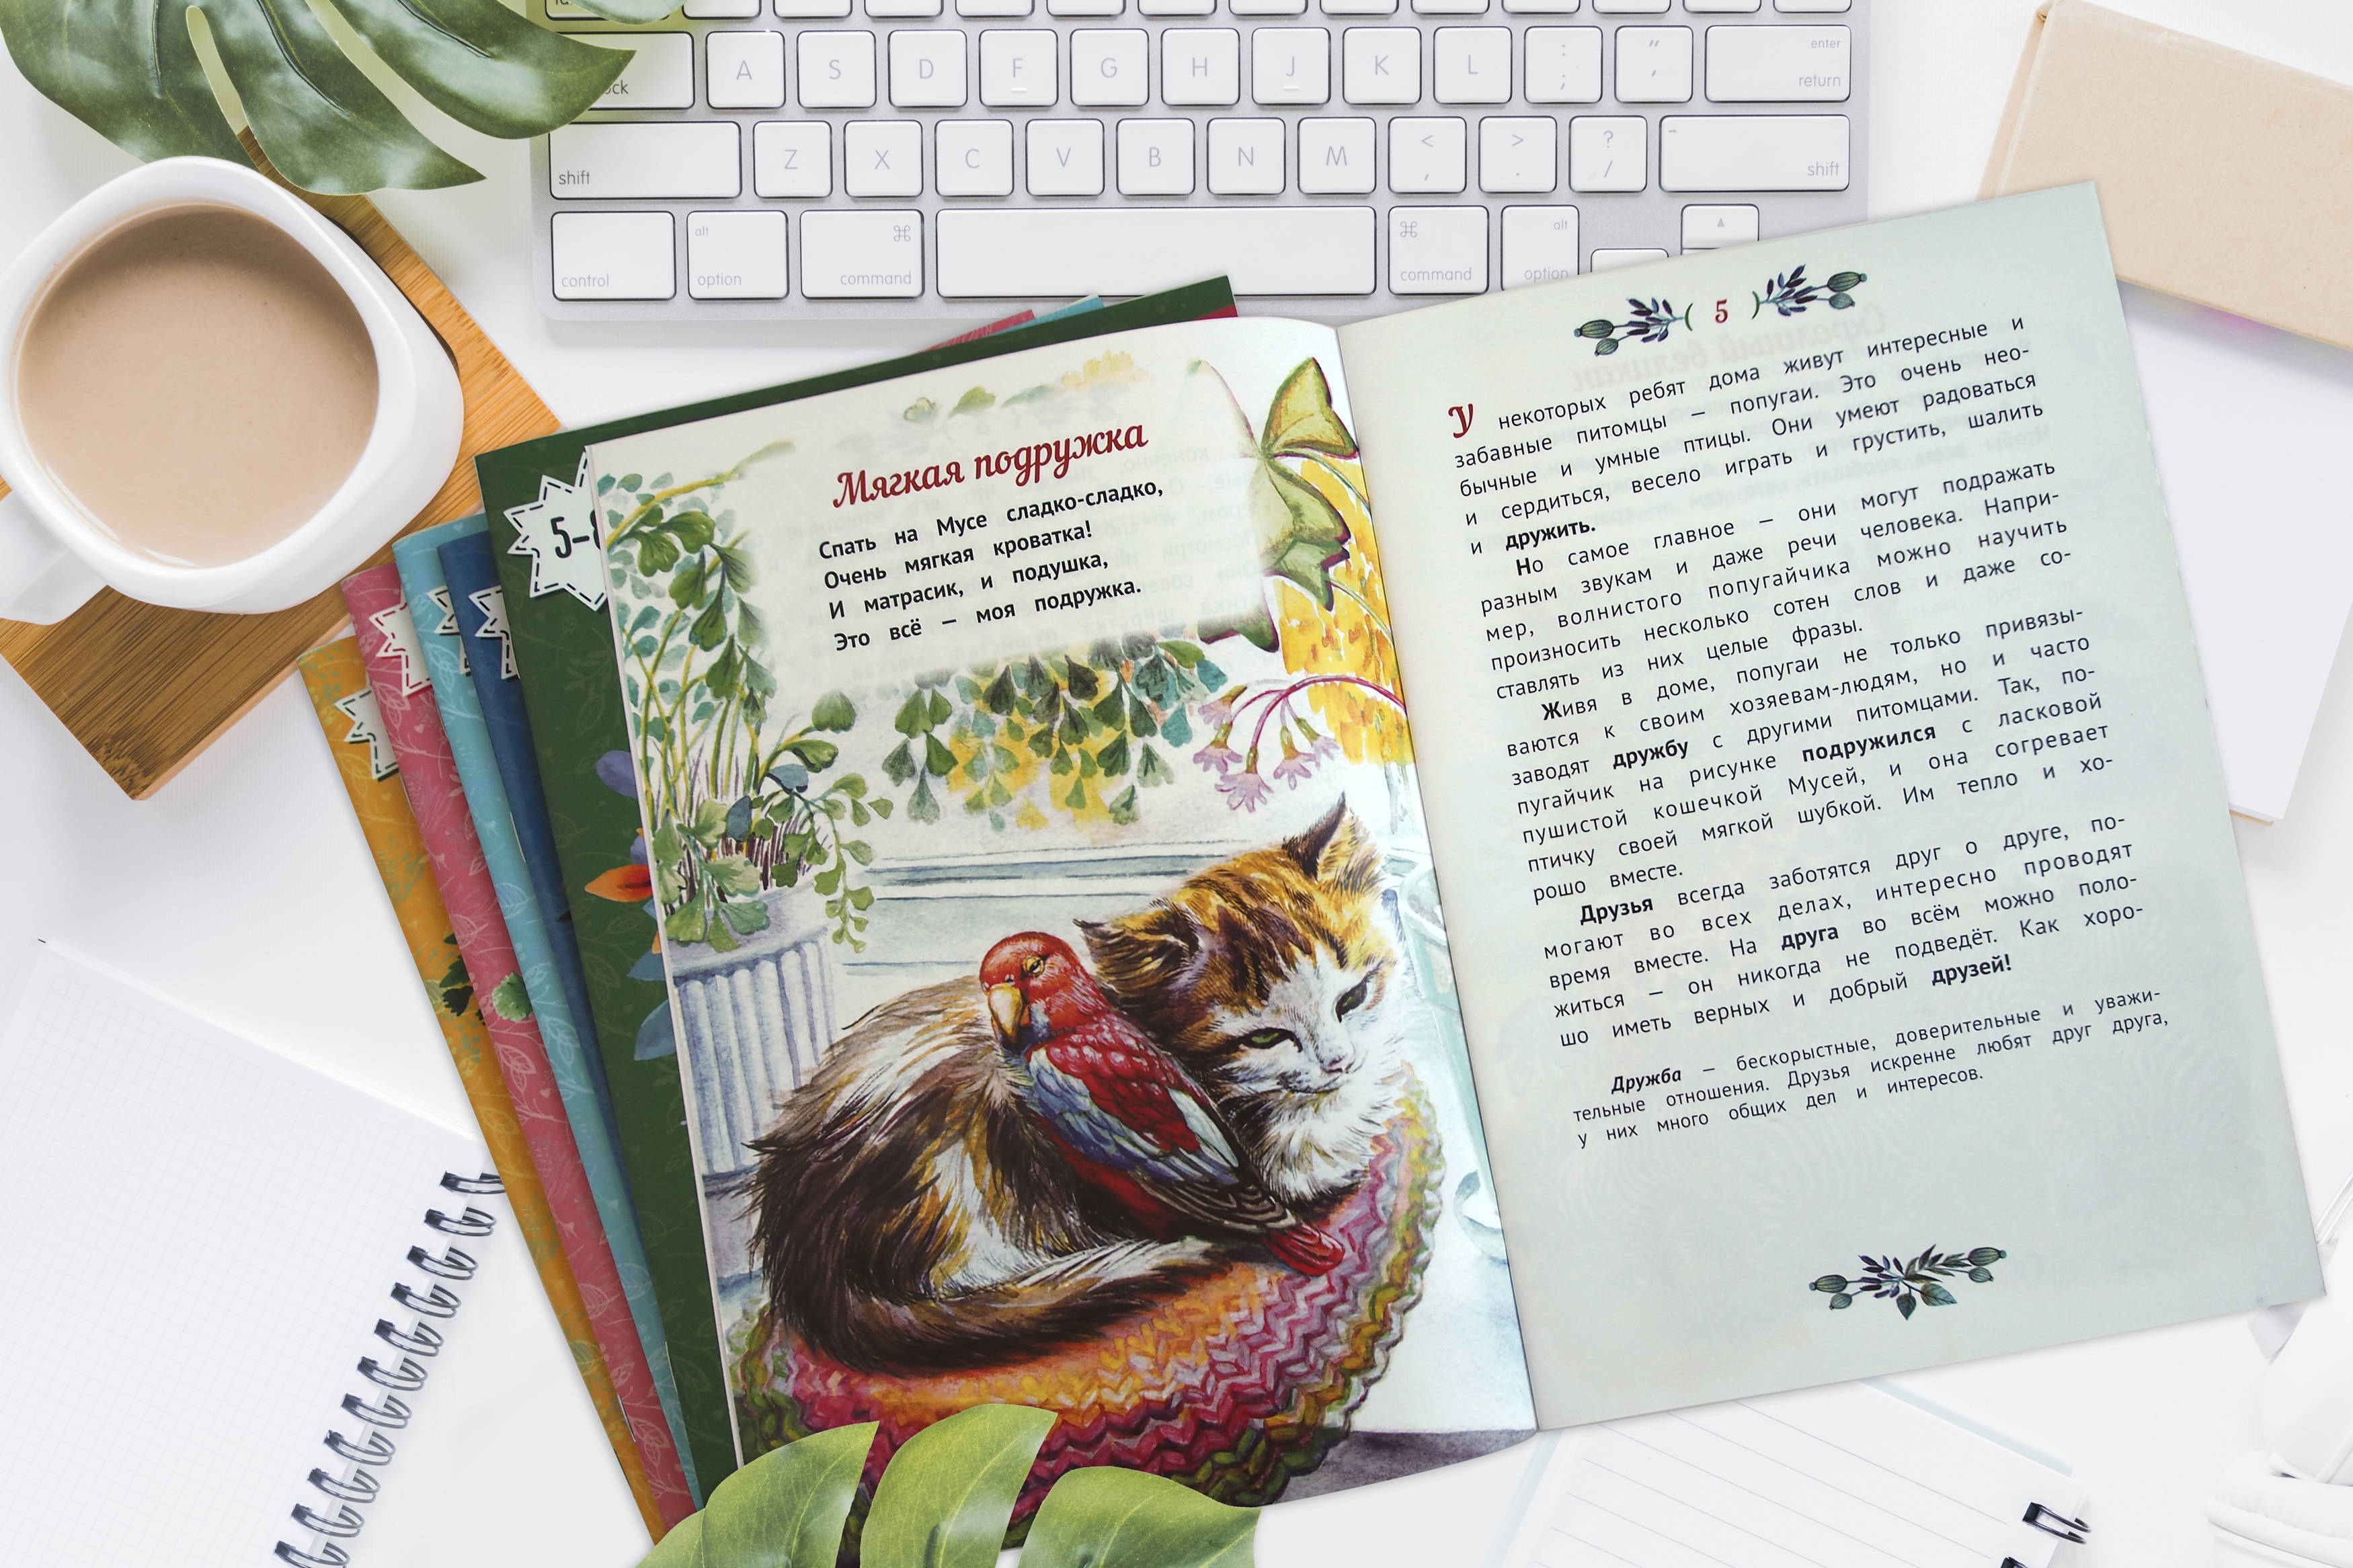 ck
A S D F G H J K L : ; " ' enter return
shift Z X C V B N M < , > . ? / shift
control alt option ⌘ command ⌘ command alt option
5-
Мягкая подружка
Спать на Мусе сладко-сладко,
Очень мягкая кроватка!
И матрасик, и подушка,
Это всё – моя подружка.
5
У некоторых ребят дома живут интересные и
забавные питомцы – попугаи. Это очень нео-
бычные и умные птицы. Они умеют радоваться
и сердиться, весело играть и грустить, шалить
и дружить.
Но самое главное – они могут подражать
разным звукам и даже речи человека. Напри-
мер, волнистого попугайчика можно научить
произносить несколько сотен слов и даже со-
ставлять из них целые фразы.
Живя в доме, попугаи не только привязы-
ваются к своим хозяевам-людям, но и часто
заводят дружбу с другими питомцами. Так, по-
пугайчик на рисунке подружился с ласковой
пушистой кошечкой Мусей, и она согревает
птичку своей мягкой шубкой. Им тепло и хо-
рошо вместе.
Друзья всегда заботятся друг о друге, по-
могают во всех делах, интересно проводят
время вместе. На друга во всём можно поло-
житься – он никогда не подведёт. Как хоро-
шо иметь верных и добрый друзей!
Дружба – бескорыстные, доверительные и уважи-
тельные отношения. Друзья искренне любят друг друга,
у них много общих дел и интересов.